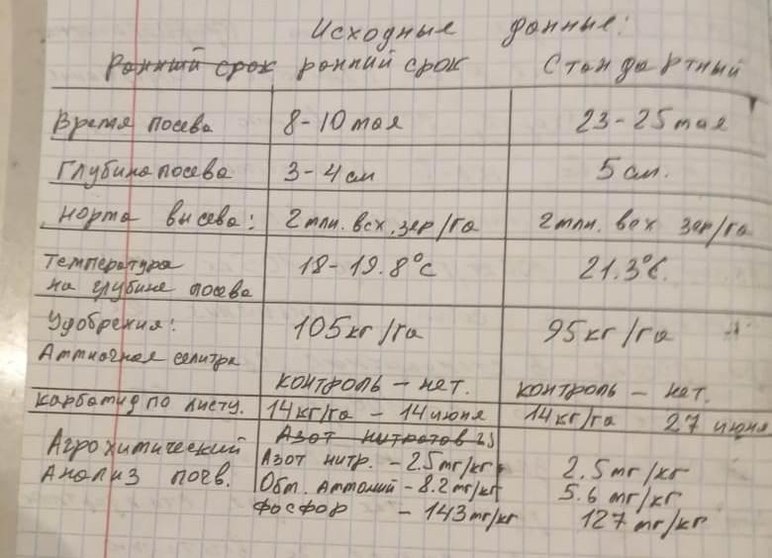 Исходные данные:
Ранний срок ранний срок Стандартный
Время посева 8-10 мая 23-25 мая
Глубина посева 3-4 см 5 см.
Норма высева: 2 млн. всх. зер/га 2 млн. всх зер/га
Температура на глубине посева 18-19.8°С 21.3°С.
Удобрения: 105 кг/га 95 кг/га
Аммиачная селитра
контроль - нет. контроль - нет.
Карбамид по листу. 14 кг/га - 14 июня 14 кг/га 27 июня
Агрохимический Азот нитратов
Анализ почв. Азот нитр. - 2.5 мг/кг 2.5 мг/кг
Обм. Аммоний - 8.2 мг/кг 5.6 мг/кг
Фосфор - 143 мг/кг 127 мг/кг